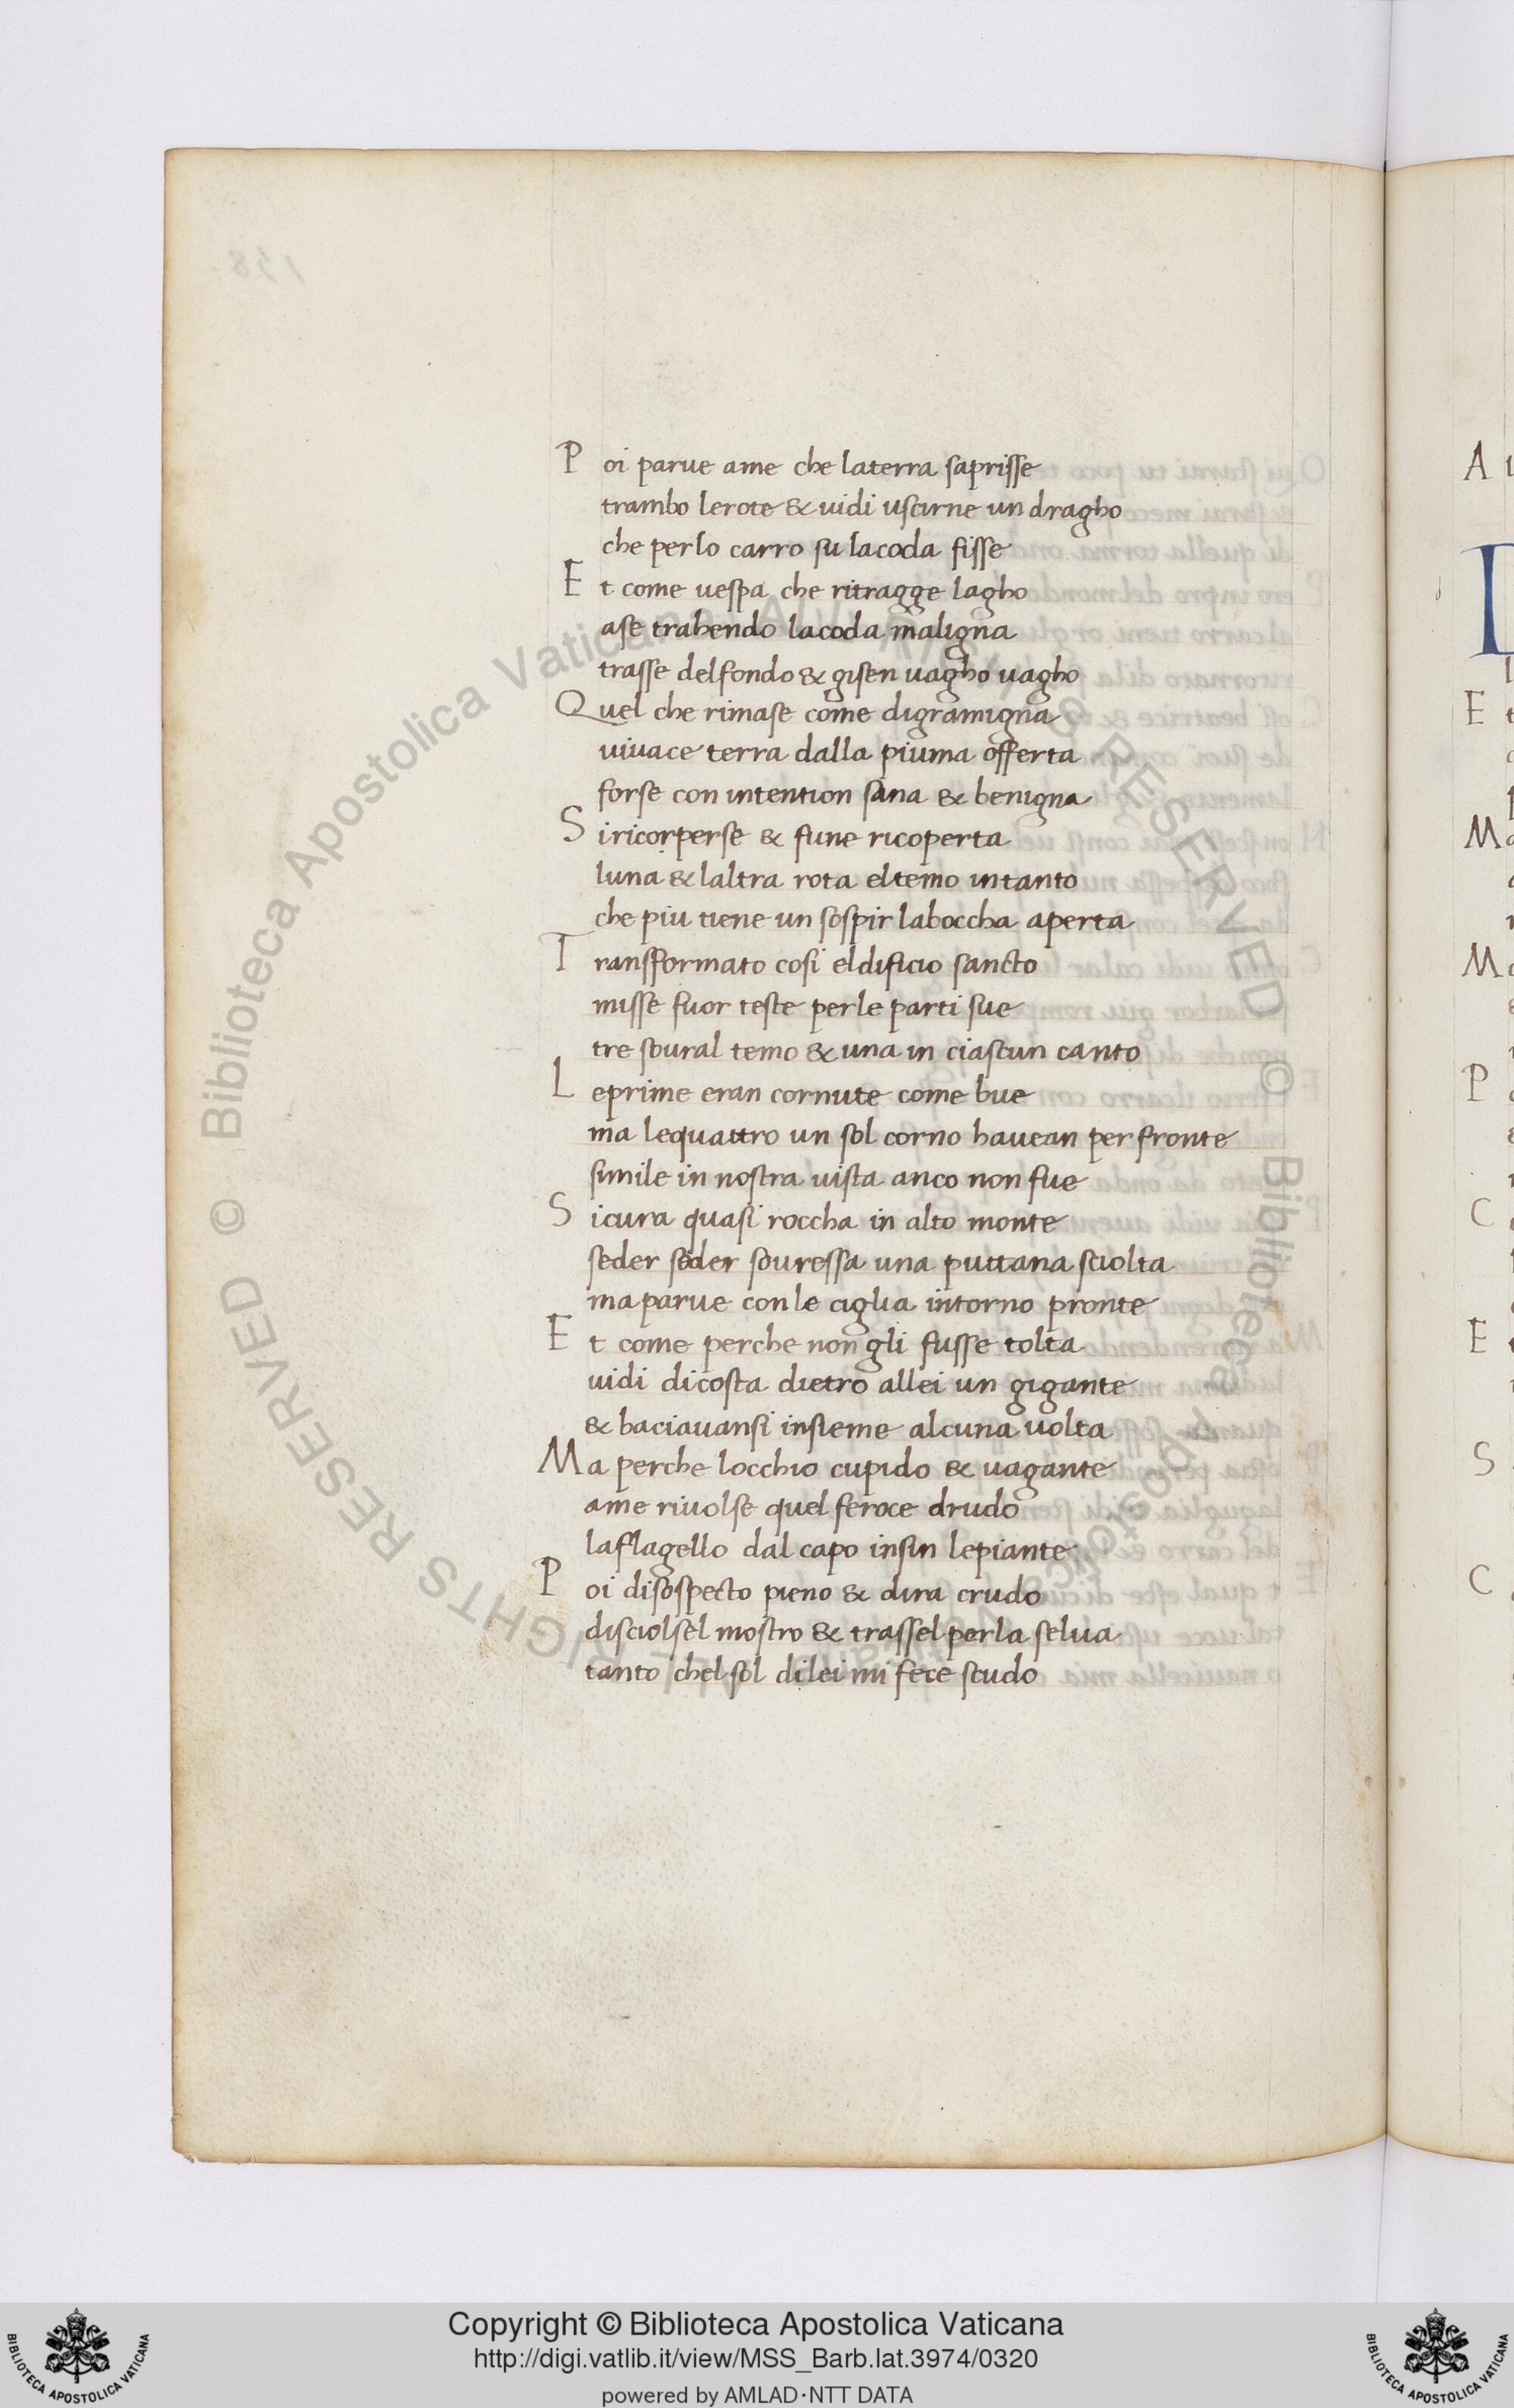 Poi parue ame che laterra saprisse
trambo lerote & uidi uscirne un dragho
che perlo carro su lacoda fisse
Et come uespa che ritragge lagho
ase trahendo lacoda maligna
trasse delfondo & gisen uagho uagho
Quel che rimase come digramigna
uiuace terra dalla piuma offerta
forse con intention sana & benigna
Siricorperse & fune ricoperta
luna & laltra rota eltemo intanto
che piu tiene un sospir laboccha aperta
Transformato cosi eldificio sancto
misse fuor teste perle parti sue
tre soural temo & una in ciascun canto
Leprime eran cornute come bue
ma lequattro un sol corno hauean per fronte
simile in nostra uista anco non fue
Sicura quasi roccha in alto monte
seder seder souressa una puttana sciolta
maparue conle ciglia intorno pronte
Et come perche non gli fusse tolta
uidi dicosta dietro allei un gigante
& baciauansi insieme alcuna uolta
Ma perche locchio cupido & uagante
ame riuolse quel feroce drudo
laflagello dal capo insin lepiante
Poi disospecto pieno & dira crudo
disciolsel mostro & trassel perla selua
tanto chel sol dilei mi fece scudo
Copyright © Biblioteca Apostolica Vaticana
http://digi.vatlib.it/view/MSS_Barb.lat.3974/0320
powered by AMLAD·NTT DATA